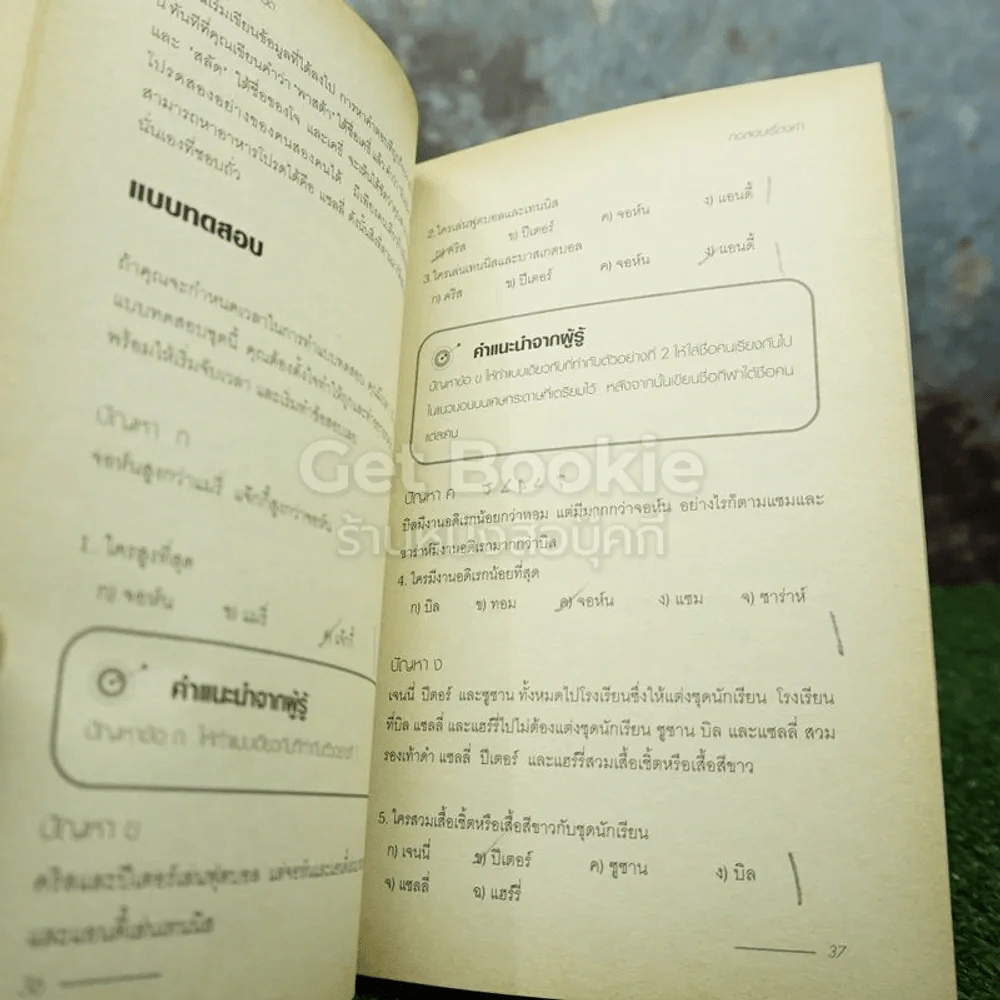 นี้ ทันทีที่คุณเขียนคำว่า "พาสต้า" ใต้ชื่อเคธี่ แล้ว
และ "สลัด" ใต้ชื่อของโจ และเคธี่ จะเห็นได้ชัดว่า
โปรดสองอย่างของคนสองคนได้ มีเพียงคนเดียว
สามารถหาอาหารโปรดได้คือ แซลลี่ ดังนั้นสิ่งที่
นั่นเองที่ชอบถั่ว
แบบทดสอบ
ถ้าคุณจะกำหนดเวลาในการทำแบบทดสอบ
แบบทดสอบชุดนี้ คุณต้องตั้งใจทำให้ถูก
พร้อมให้เริ่มจับเวลา และเริ่มทำข้อสอบเลย
ปัญหา ก
จอห์นสูงกว่าแมรี่ แจ๊กกี้สูงกว่าจอห์น
1. ใครสูงที่สุด
ก) จอห์น ข) แมรี่ ค) แจ๊กกี้
คำแนะนำจากผู้รู้
ปัญหาข้อ ก ให้ทำแบบเดียวกับตัวอย่างที่ 1
ปัญหา ข
คริสและปีเตอร์เล่นฟุตบอล
และแอนดี้เล่นเทนนิส
36
ทดสอบเรื่องคำ
2. ใครเล่นฟุตบอลและเทนนิส
ก) คริส ข) ปีเตอร์ ค) จอห์น ง) แอนดี้
3. ใครเล่นเทนนิสและบาสเกตบอล
ก) คริส ข) ปีเตอร์ ค) จอห์น ง) แอนดี้
คำแนะนำจากผู้รู้
ปัญหาข้อ ข ให้ทำแบบเดียวกับที่ทำกับตัวอย่างที่ 2 ให้ใส่ชื่อคนเรียงกันไป
ในแนวนอนบนเศษกระดาษที่เตรียมไว้ หลังจากนั้นเขียนชื่อกีฬาใต้ชื่อคน
แต่ละคน
Get Bookie
ร้านหนังสือบุ๊คกี้
ปัญหา ค
บิลมีงานอดิเรกน้อยกว่าทอม แต่มีมากกว่าจอห์น อย่างไรก็ตามแซมและ
ซาร่าห์มีงานอดิเรกมากกว่าบิล
4. ใครมีงานอดิเรกน้อยที่สุด
ก) บิล ข) ทอม ค) จอห์น ง) แซม จ) ซาร่าห์
ปัญหา ง
เจนนี่ ปีเตอร์ และซูซาน ทั้งหมดไปโรงเรียนซึ่งให้แต่งชุดนักเรียน โรงเรียน
ที่บิล แซลลี่ และแฮร์รี่ไปไม่ต้องแต่งชุดนักเรียน ซูซาน บิล และแซลลี่ สวม
รองเท้าดำ แซลลี่ ปีเตอร์ และแฮร์รี่สวมเสื้อเชิ้ตหรือเสื้อสีขาว
5. ใครสวมเสื้อเชิ้ตหรือเสื้อสีขาวกับชุดนักเรียน
ก) เจนนี่ ข) ปีเตอร์ ค) ซูซาน ง) บิล
จ) แซลลี่ ฉ) แฮร์รี่
37